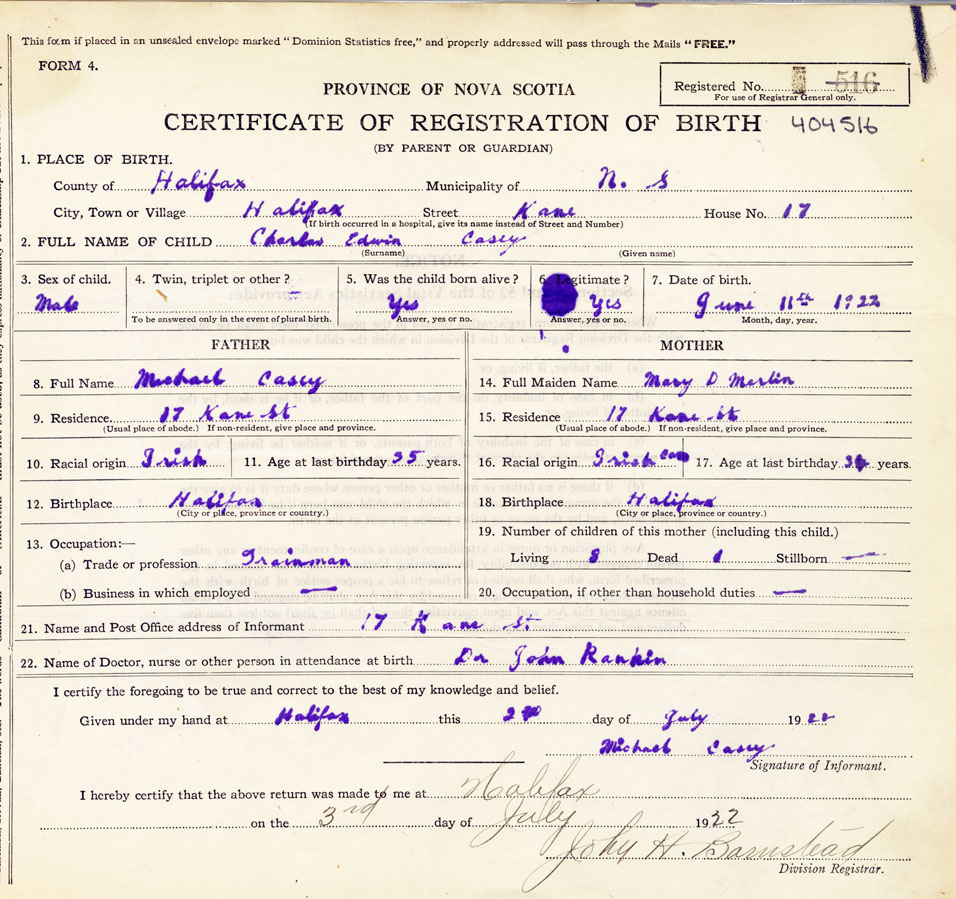 This form if placed in an unsealed envelope marked "Dominion Statistics free," and properly addressed will pass through the Mails "FREE."
FORM 4.
PROVINCE OF NOVA SCOTIA
Registered No. 516
For use of Registrar General only.
CERTIFICATE OF REGISTRATION OF BIRTH 404516
(BY PARENT OR GUARDIAN)
1. PLACE OF BIRTH.
County of Halifax Municipality of N. S
City, Town or Village Halifax Street Kane House No. 17
(If birth occurred in a hospital, give its name instead of Street and Number)
2. FULL NAME OF CHILD Charles Edwin Casey
(Surname) (Given name)
3. Sex of child. 4. Twin, triplet or other? 5. Was the child born alive? 6. Legitimate? 7. Date of birth.
Male Yes Yes June 11th 1922
To be answered only in the event of plural birth. Answer, yes or no. Answer, yes or no. Month, day, year.
FATHER MOTHER
8. Full Name Michael Casey 14. Full Maiden Name Mary D Merlin
9. Residence. 17 Kane St 15. Residence 17 Kane St
(Usual place of abode.) If non-resident, give place and province. (Usual place of abode.) If non-resident, give place and province.
10. Racial origin Irish 11. Age at last birthday 35 years. 16. Racial origin Irish 17. Age at last birthday years.
12. Birthplace Halifax 18. Birthplace Halifax
(City or place, province or country.) (City or place, province or country.)
13. Occupation:— 19. Number of children of this mother (including this child.)
(a) Trade or profession Trainman Living 8 Dead 1 Stillborn —
(b) Business in which employed — 20. Occupation, if other than household duties —
21. Name and Post Office address of Informant 17 Kane St
22. Name of Doctor, nurse or other person in attendance at birth Dr John Rankin
I certify the foregoing to be true and correct to the best of my knowledge and belief.
Given under my hand at Halifax this day of July 1922
Michael Casey
Signature of Informant.
I hereby certify that the above return was made to me at Halifax
on the 3rd day of July 1922
John H. Barnstead
Division Registrar.